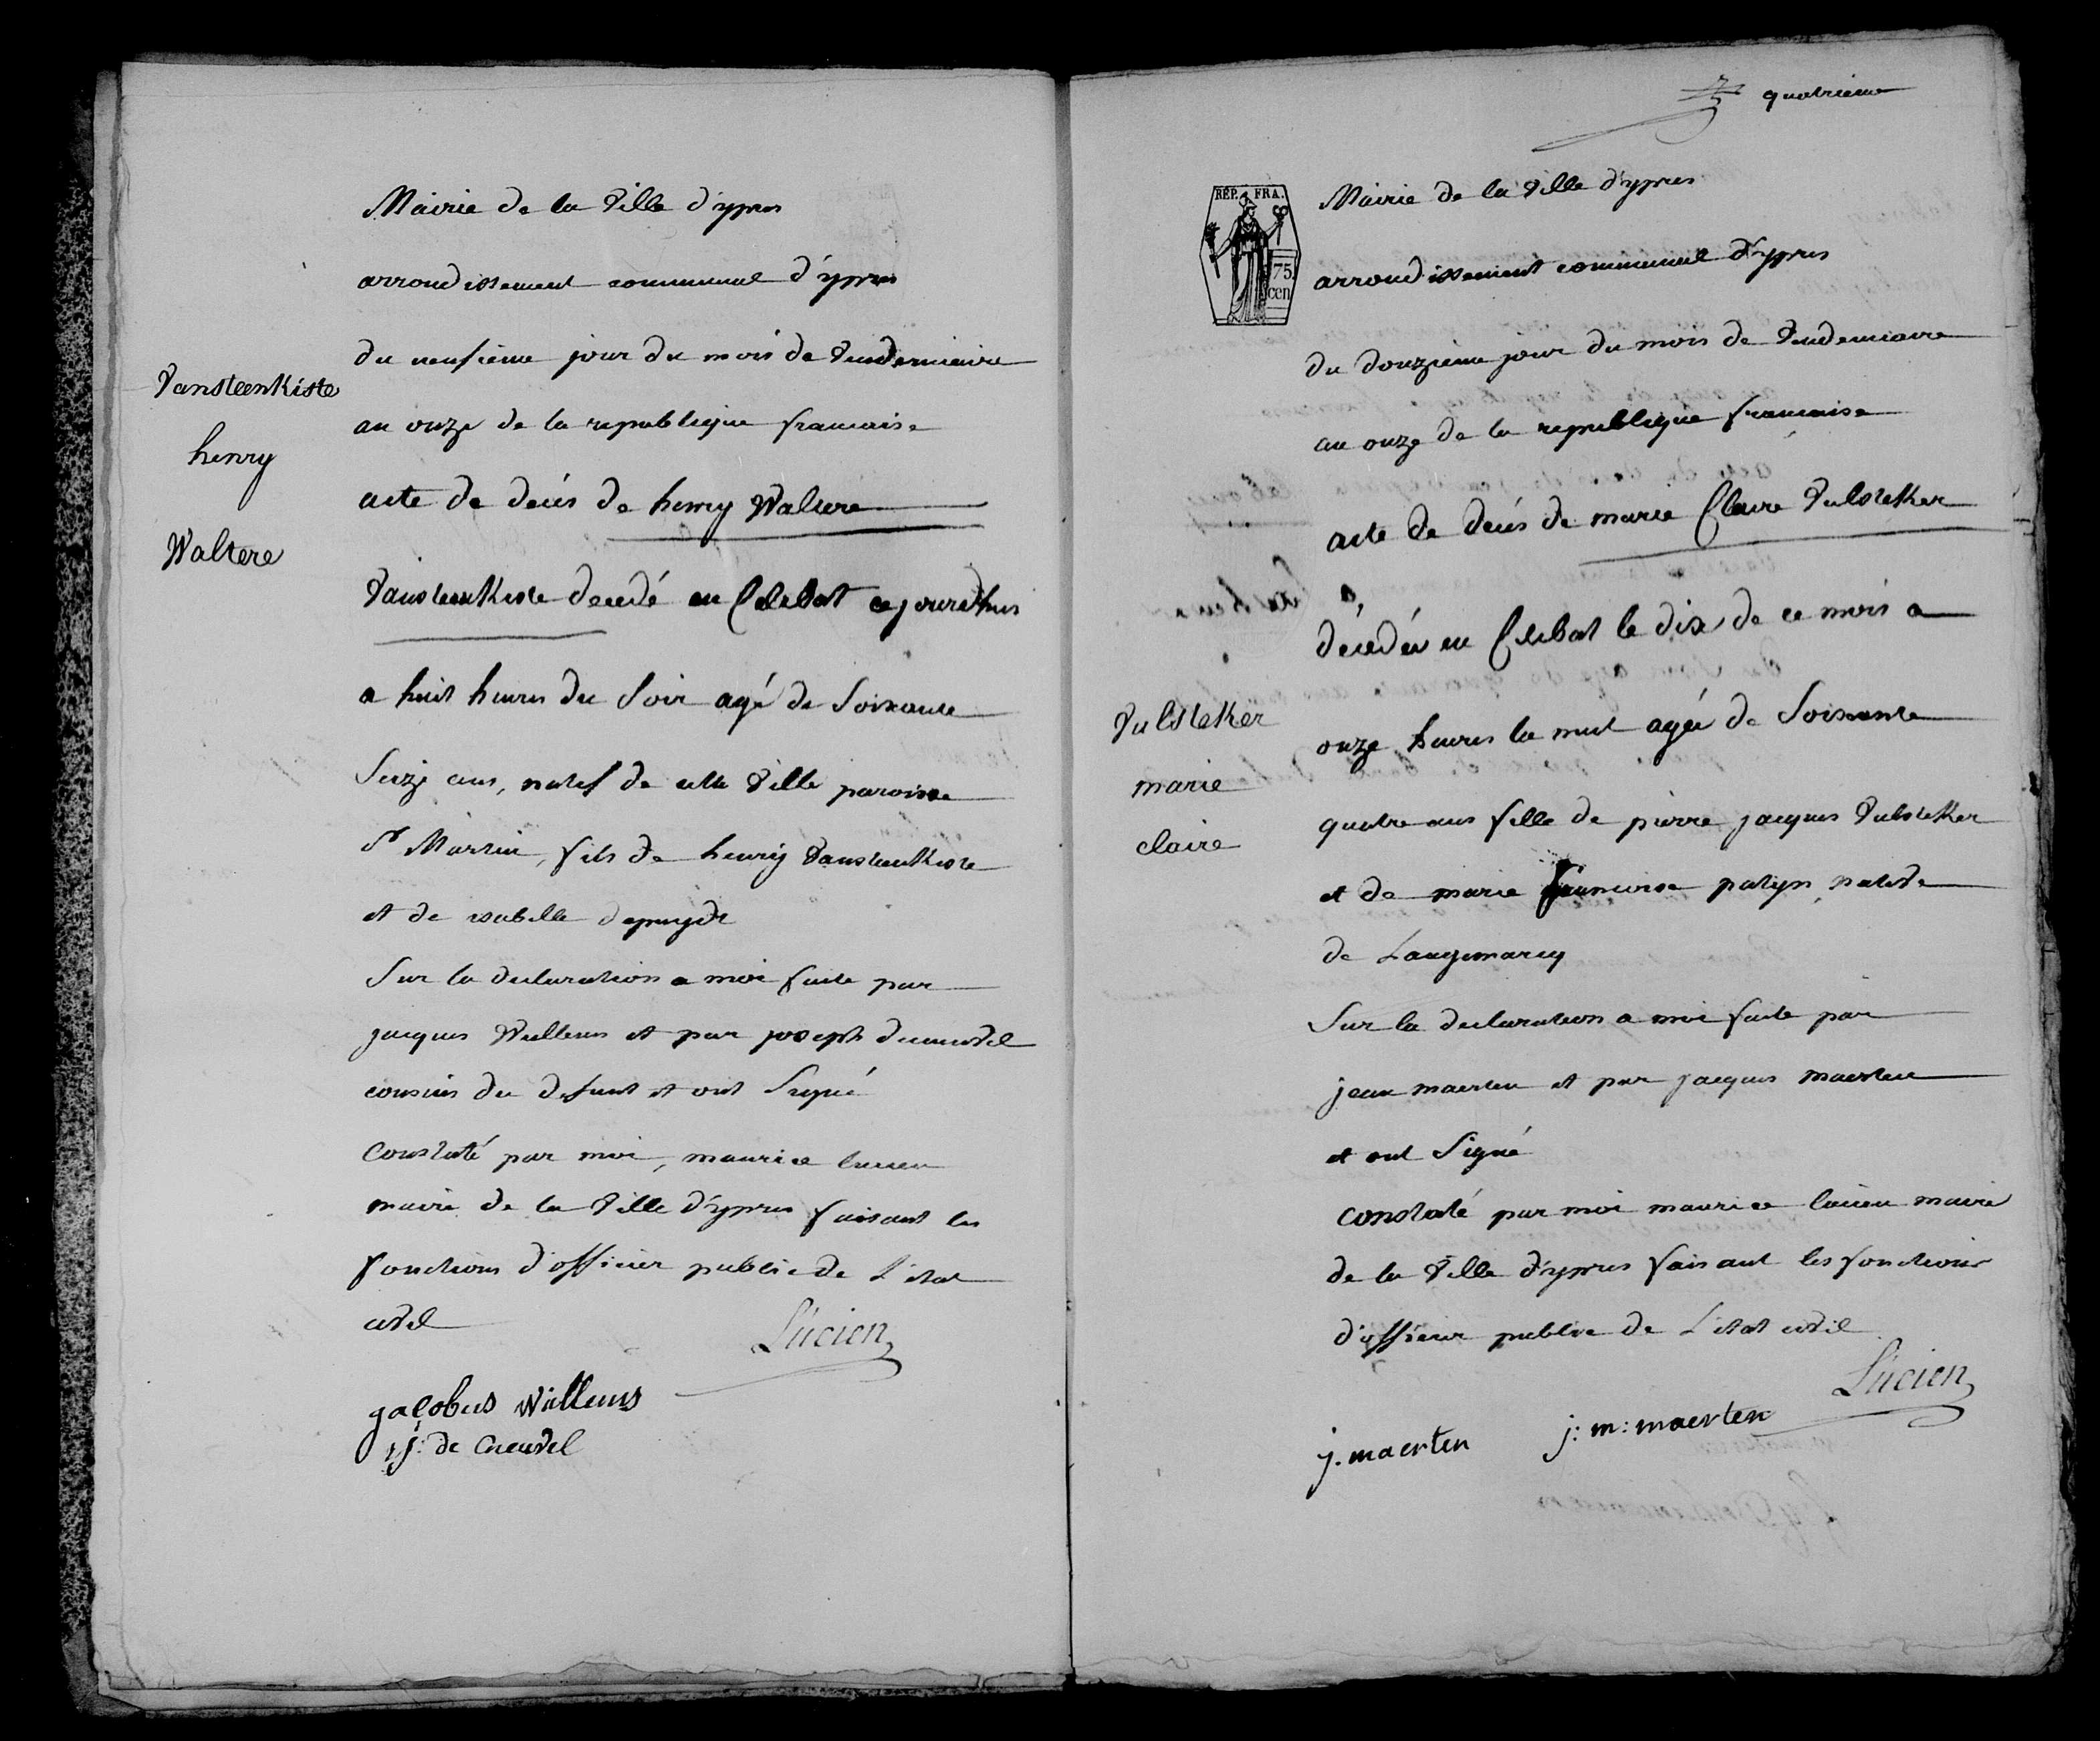 Vansteenkiste
henry
Waltere
Mairie de la Ville d'ypres
arrondissement communal d'ypres
du neufieme jour du mois de Vendemiaire
an onze de la republique francaise
acte de decés de henry Waltere
Vansteenkiste decedé en Celebat cejourdhui
a huit heures du Soir agé de Soixante
Seize ans, natif de cette Ville paroisse
St Martin, fils de henry Vansteenkiste
et de isabelle depuydt
Sur la declaration a moi faite par
jacques Willems et par joseph
cousins du defunt et ont Signé
Constaté par moi, maurice lucien
maire de la Ville d'ypres faisant les
fonctions d'officier public de L'état
civil
Lucien
jacobus Willems
j: de
quatrieme
RÉP. FRA.
75
cen
Mairie de la Ville d'ypres
arrondissement communal d'ypres
du douzieme jour du mois de Vendemiaire
an onze de la republique francaise
acte de decés de marie Claire Vulsteker
décedée en Celebat le dix de ce mois a
onze heures la nuit agée de Soixante
quatre ans fille de pierre jacques Vulsteker
et de marie francoise patyn native
de Langemarcq
Sur la declaration a moi faite par
jean maerten et par jacques maerten
et ont Signé
constaté par moi maurice lucien maire
de la Ville d'ypres faisant les fonctions
d'officier public de L'état civil
Lucien
j. maerten j: m: maerten
Vulsteker
marie
claire